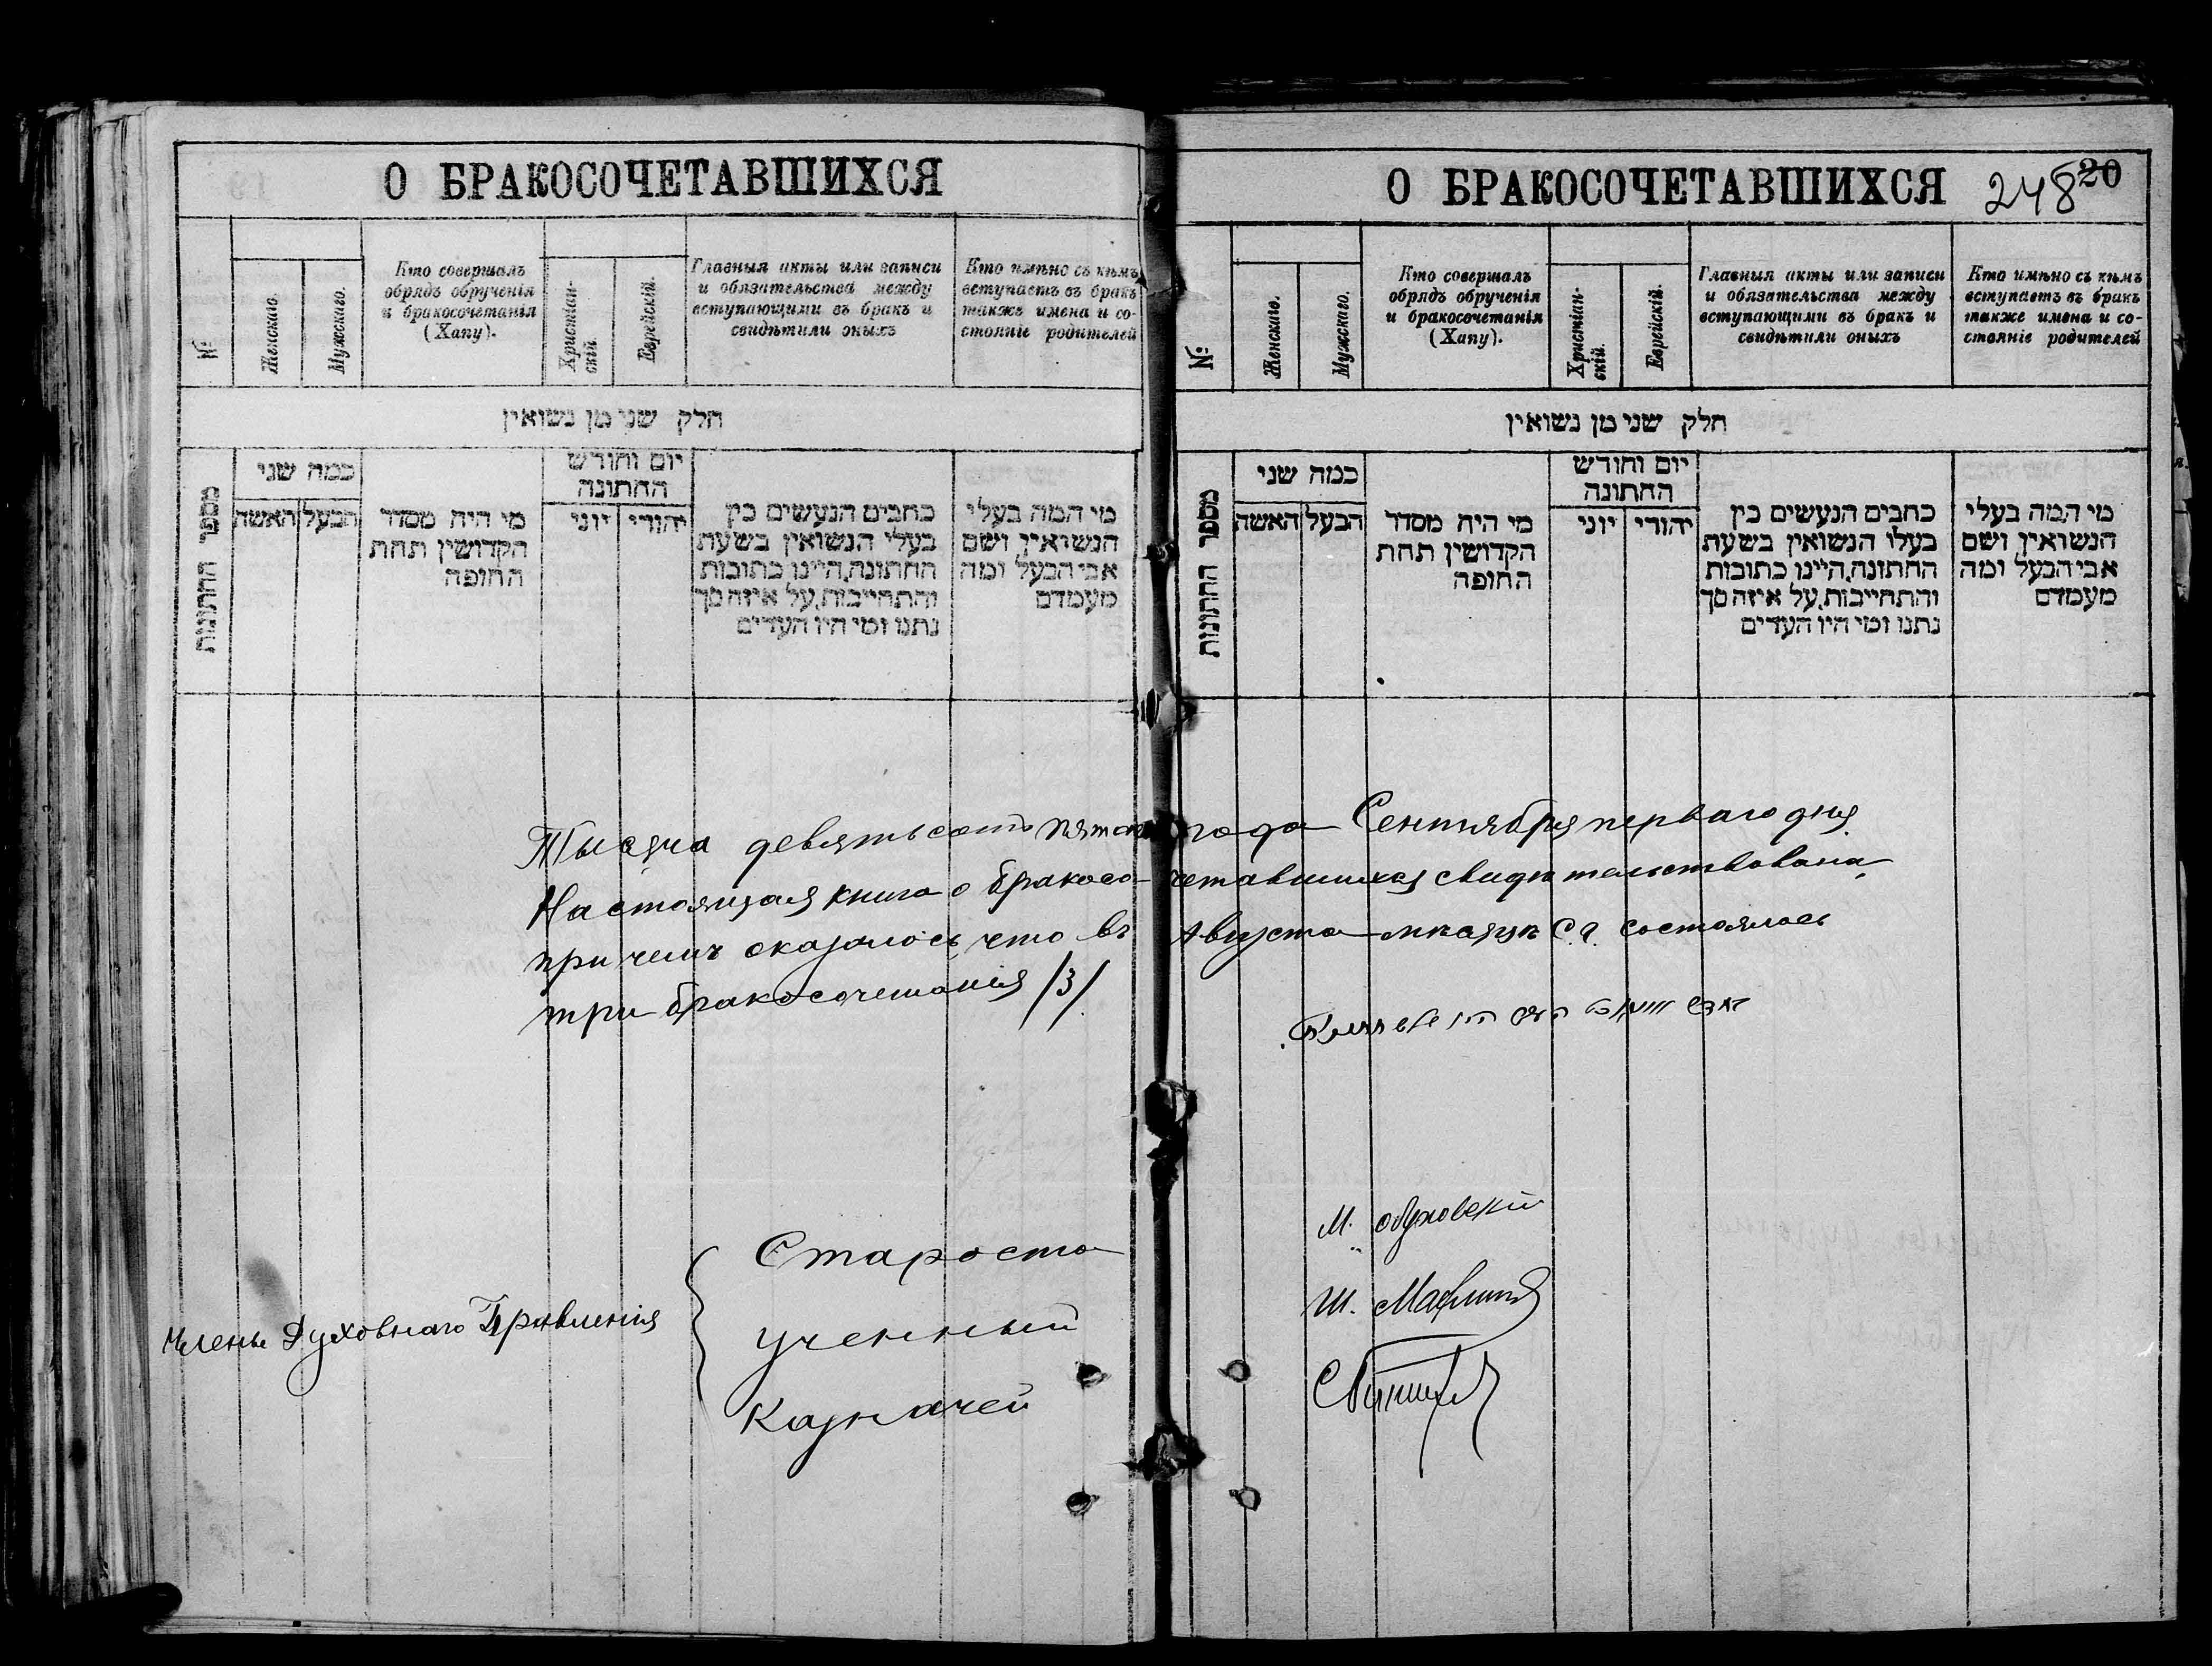 О БРАКОСОЧЕТАВШИХСЯ
№
Женскаго.
Мужескаго.
Кто совершалъ
обрядъ обрученія
и бракосочетанія
(Хапу).
Христіан-
скій.
Еврейскій.
Главныя акты или записи
и обязательства между
вступающими въ бракъ и
свидѣтили оныхъ
Кто имѣно съ кѣмъ
вступаетъ въ бракъ
также имена и со-
стояніе родителей
חלק שני מן נשואין
מספר החתונות
כמה שני
האשה
הבעל
מי היה מסדר
הקדושין תחת
החופה
יום וחודש
החתונה
יוני
יהודי
כתבים הנעשים בין
בעלי הנשואין בשעת
החתונה, היינו כתובות
והתחייבות, על איזה סך
נתנו ומי היו העדים
מי המה בעלי
הנשואין ושם
אבי הבעל ומה
מעמדם
О БРАКОСОЧЕТАВШИХСЯ
248 20
№
Женскаго.
Мужскаго.
Кто совершалъ
обрядъ обрученія
и бракосочетанія
(Хапу).
Христіан-
скій.
Еврейскій.
Главныя акты или записи
и обязательства между
вступающими въ бракъ и
свидѣтили оныхъ
Кто имѣно съ кѣмъ
вступаетъ въ бракъ
также имена и со-
стояніе родителей
חלק שני מן נשואין
מספר החתונות
כמה שני
האשה
הבעל
מי היה מסדר
הקדושין תחת
החופה
יום וחודש
החתונה
יוני
יהודי
כתבים הנעשים בין
בעלו הנשואין בשעת
החתונה, היינו כתובות
והתחייבות, על איזה סך
נתנו ומי היו העדים
מי המה בעלי
הנשואין ושם
אבי הבעל ומה
מעמדם
Тысяча девятьсотъ пятаго года Сентября перваго дня
Настоящая книга о бракосо-четавшихся свидѣтельствована,
при чемъ оказалось, что въ Августа мѣсяцѣ с.г. состоялось
три бракосочетанія /3/.
Члены Духовнаго Правленія
Староста
Ученный
Казначей
М.
Ш.